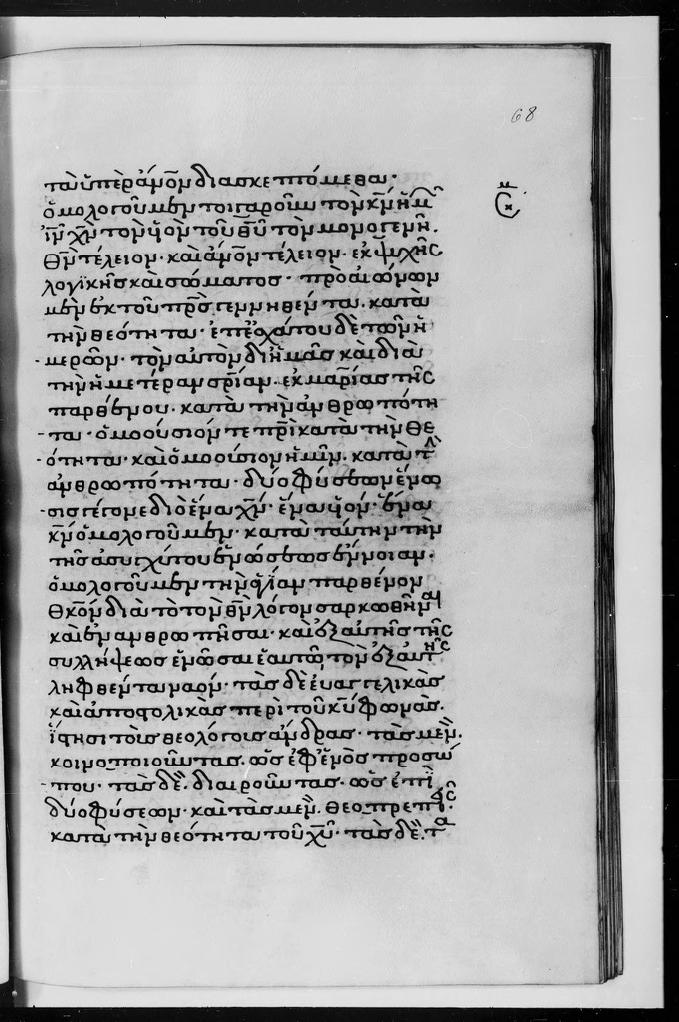 68
τὰ ὑπὲρ ἀν̅ο̅ν̅ διασκεπτόμεθα·
ὁμολογοῦμεν τοιγαροῦν τὸν κ̅ν̅ ἡμ̅
ι̅ν̅ χ̅ν̅ τὸν υ̅ν̅ τοῦ θ̅υ̅ τὸν μονογενῆ.
θ̅ν̅ τέλειον· καὶ ἀν̅ο̅ν̅ τέλειον· ἐκ ψυχῆς
λογϊκῆς καὶ σώματος· πρὸ αἰώνων
μὲν ἐκ τοῦ π̅ρ̅ς̅ γεννηθέντα. κατὰ
τὴν θεότητα· ἐπ' ἐσχάτου δὲ τῶν ἡ
-μερῶν· τὸν αὐτὸν δι' ἡμᾶς καὶ διὰ
τὴν ἡμετέραν σ̅ρ̅ίαν· ἐκ μαρίας τῆς
παρθένου. κατὰ τὴν ἀνθρωπότη
-τα· ὁμοούσιόν τε π̅ρ̅ὶ κατὰ τὴν θε
-ότητα· καὶ ὁμοούσιον ἡμῖν. κατὰ τ̅
ἀνθρωπότητα· δύο φύσεων ἕνω
-σις γέγονε διὸ ἕνα χ̅ν̅· ἕνα υ̅ν̅· ἕνα
κ̅ν̅ ὁμολογοῦμεν· κατὰ ταύτην τὴν
τῆς ἀσυγχύτου ἑνώσεως ἔννοιαν.
ὁμολογοῦμεν τὴν ἁγίαν παρθένον
θ̅κ̅ο̅ν̅ διὰ τὸ τὸν θ̅ν̅ λόγον σαρκωθῆναι
καὶ ἐνανθρωπῆσαι· καὶ ἐξ αὐτῆς τῆς
συλλήψεως ἑνῶσαι ἑαυτῶ τὸν ἐξ αὐτῆς
ληφθέντα ναόν· τὰς δὲ εὐαγγελικὰς
καὶ ἀποστολικὰς περὶ τοῦ κ̅υ̅ φωνὰς.
ἴσησι τοὺς θεολόγους ἄνδρας· τὰς μὲν.
κοινοποιοῦντας. ὡς ἐφ' ἑνὸς προσώ
-που· τὰς δὲ. διαιροῦντας. ὡς ἐπὶ
δύο φύσεων· καὶ τὰς μὲν. θεοπρεπεῖς·
κατὰ τὴν θεότητα τοῦ χ̅υ̅· τὰς δὲ. τα